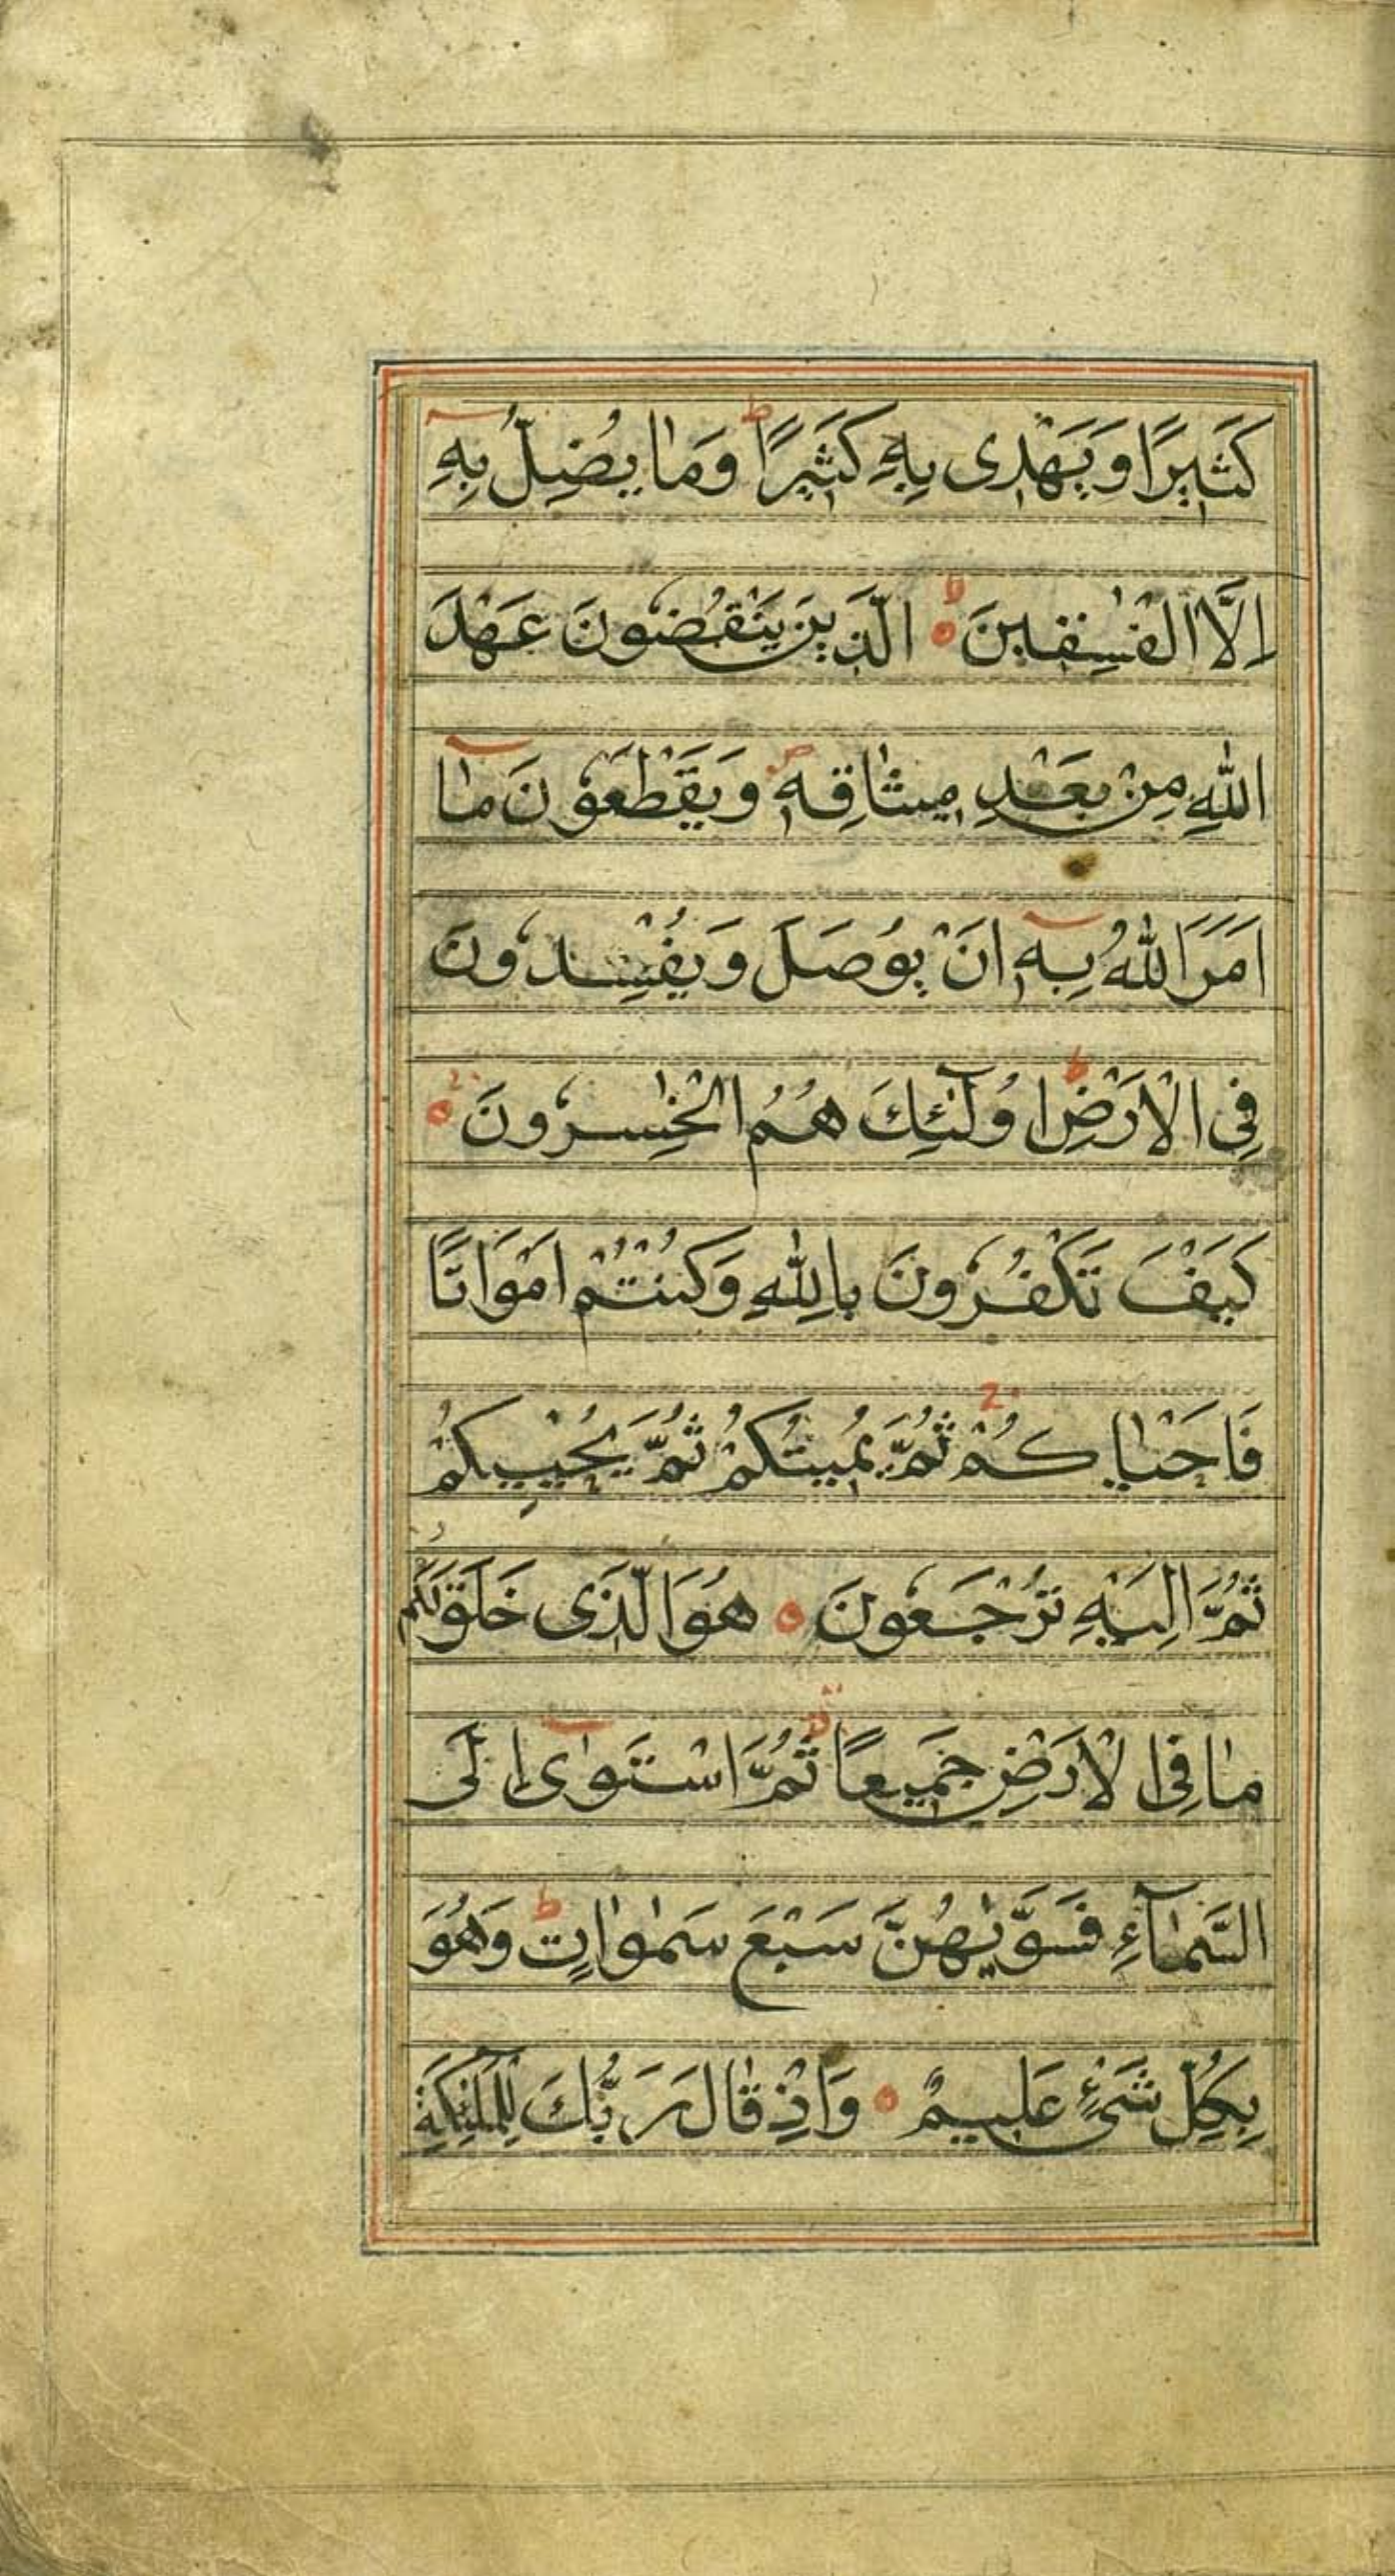 كَثِيرًا وَيَهْدِى بِهٖ كَثِيرًا ط وَمَا يُضِلُّ بِهٖ
اِلَّا الْفٰسِقِينَ لا الَّذِينَ يَنْقُضُونَ عَهْدَ
اللّٰهِ مِنْ بَعْدِ مِيثَاقِهٖ ص وَيَقْطَعُونَ مَا
اَمَرَ اللّٰهُ بِهٖ اَنْ يُوصَلَ وَيُفْسِدُونَ
فِى الْاَرْضِ ط اُولٰٓئِكَ هُمُ الْخٰسِرُونَ
كَيْفَ تَكْفُرُونَ بِاللّٰهِ وَكُنْتُمْ اَمْوَاتًا
فَاَحْيَاكُمْ ج ثُمَّ يُمِيتُكُمْ ثُمَّ يُحْيِيكُمْ
ثُمَّ اِلَيْهِ تُرْجَعُونَ هُوَ الَّذِى خَلَقَ لَكُمْ
مَا فِى الْاَرْضِ جَمِيعًا ثُمَّ اسْتَوٰى اِلَى
السَّمَآءِ فَسَوّٰيهُنَّ سَبْعَ سَمٰوَاتٍ ط وَهُوَ
بِكُلِّ شَىْءٍ عَلِيمٌ وَاِذْ قَالَ رَبُّكَ لِلْمَلٰٓئِكَةِ